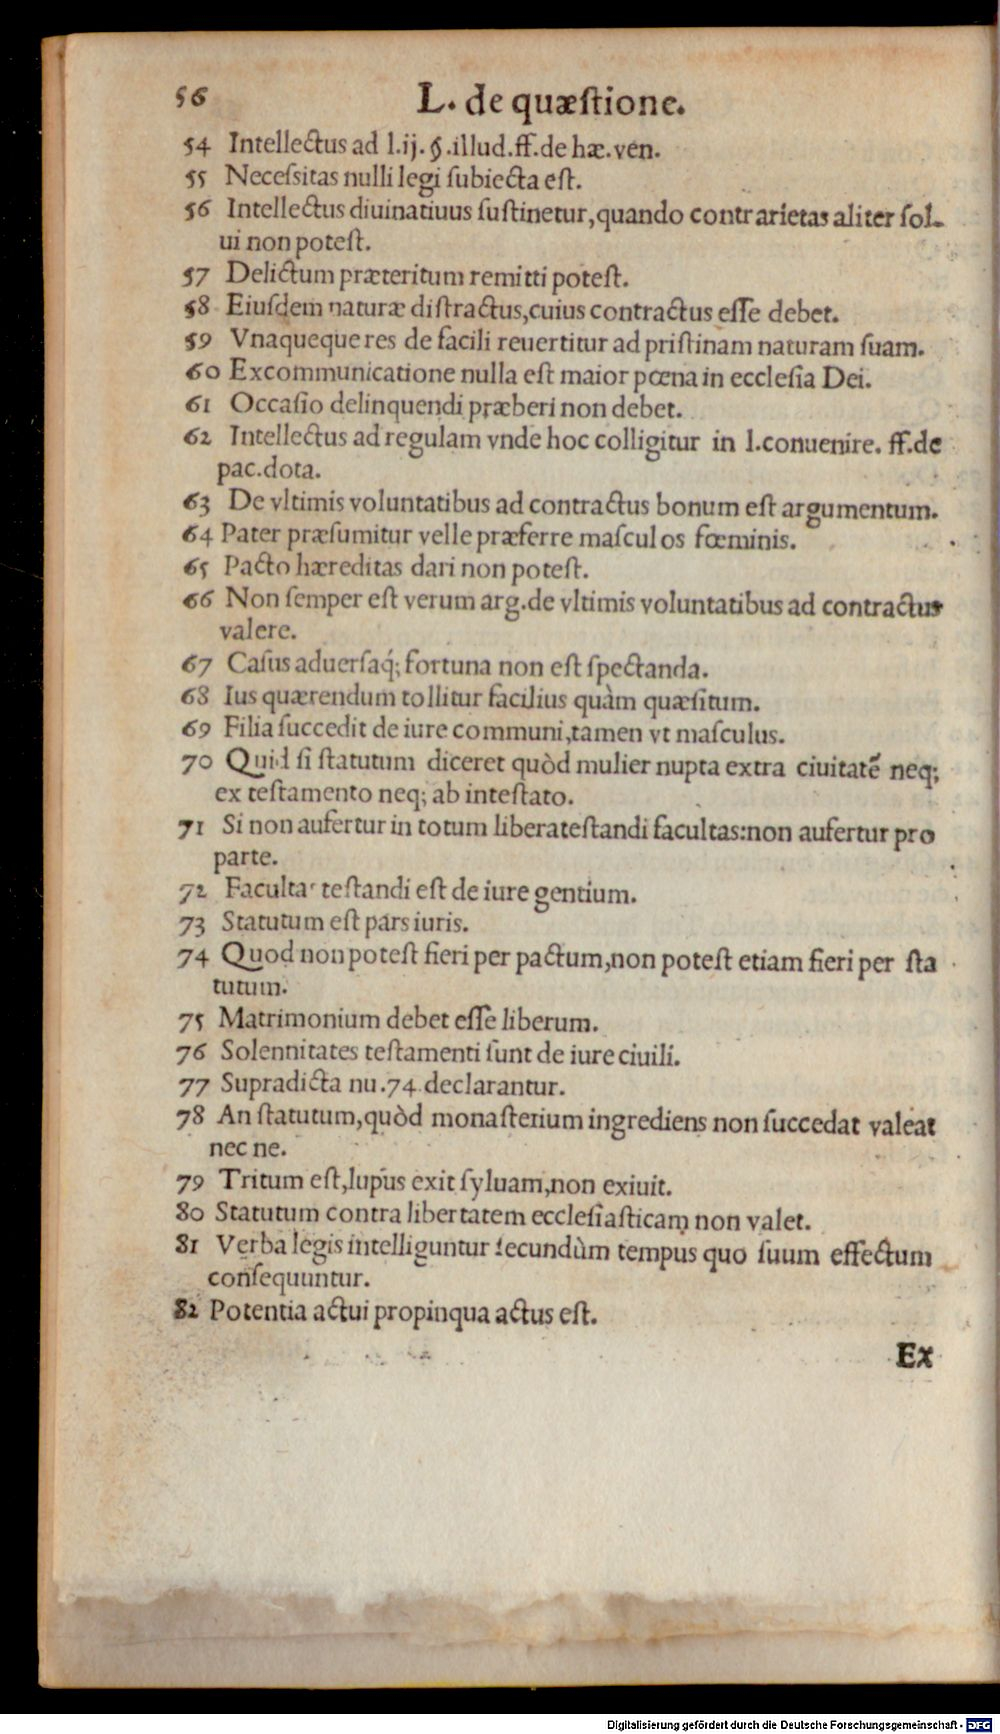 56
L. de quæſtione.
54 Intellectus ad l.ij. §.illud.ff.de hæ.ven.
55 Neceſsitas nulli legi ſubiecta eſt.
56 Intellectus diuinatiuus ſuſtinetur,quando contrarietas aliter ſol-
ui non poteſt.
57 Delictum præteritum remitti poteſt.
58 Eiuſdem naturæ diſtractus,cuius contractus eſſe debet.
59 Vnaqueque res de facili reuertitur ad priſtinam naturam ſuam.
60 Excommunicatione nulla eſt maior pœna in eccleſia Dei.
61 Occaſio delinquendi præberi non debet.
62 Intellectus ad regulam vnde hoc colligitur in l.conuenire. ff.de
pac.dota.
63 De vltimis voluntatibus ad contractus bonum eſt argumentum.
64 Pater præſumitur velle præferre maſculos fœminis.
65 Pacto hæreditas dari non poteſt.
66 Non ſemper eſt verum arg.de vltimis voluntatibus ad contractus
valere.
67 Caſus aduerſaq́; fortuna non eſt ſpectanda.
68 Ius quærendum tollitur facilius quàm quæſitum.
69 Filia ſuccedit de iure communi,tamen vt maſculus.
70 Quid ſi ſtatutum diceret quòd mulier nupta extra ciuitatẽ neq;
ex teſtamento neq; ab inteſtato.
71 Si non aufertur in totum libera teſtandi facultas:non aufertur pro
parte.
72 Faculta teſtandi eſt de iure gentium.
73 Statutum eſt pars iuris.
74 Quod non poteſt fieri per pactum,non poteſt etiam fieri per ſta
tutum.
75 Matrimonium debet eſſe liberum.
76 Solennitates teſtamenti ſunt de iure ciuili.
77 Supradicta nu.74 declarantur.
78 An ſtatutum,quòd monaſterium ingrediens non ſuccedat valeat
nec ne.
79 Tritum eſt,lupus exit ſyluam,non exiuit.
80 Statutum contra libertatem eccleſiaſticam non valet.
81 Verba legis intelliguntur ſecundùm tempus quo ſuum effectum
conſequuntur.
82 Potentia actui propinqua actus eſt.
Ex
Digitalisierung gefördert durch die Deutsche Forschungsgemeinschaft - DFG